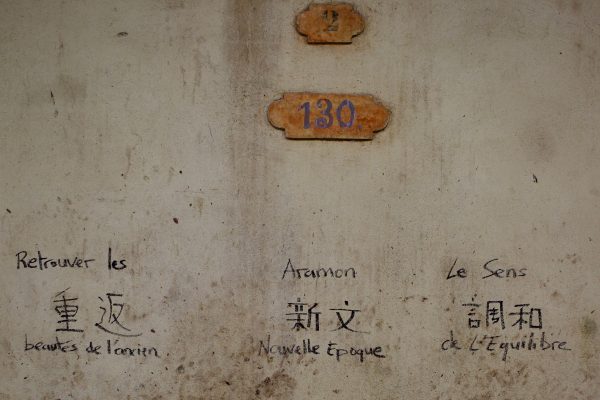 2
130
Retrouver les
重返
beautés de l'ancien
Aramon
新文
Nouvelle Epoque
Le Sens
調和
de L'Equilibre